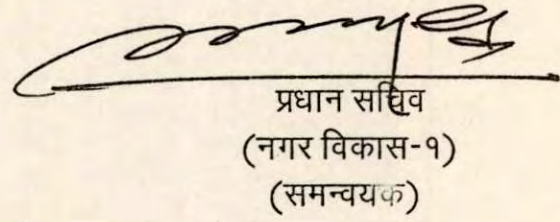 प्रधान सचिव
(नगर विकास-१)
(समन्वयक)